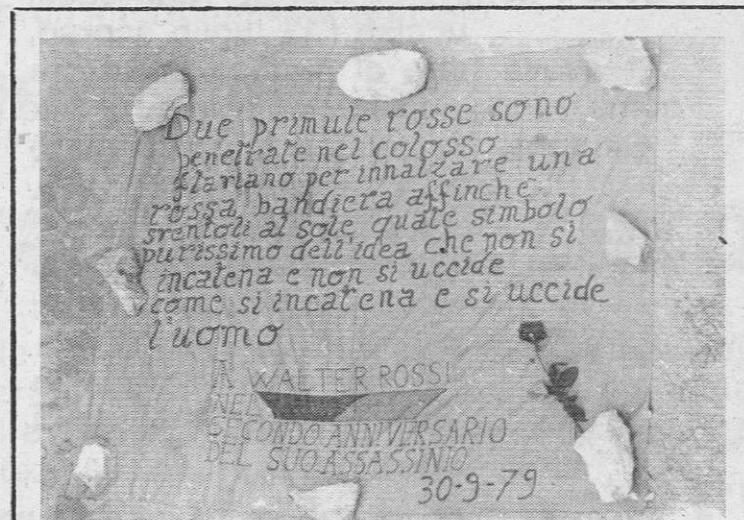 Due primule rosse sono
penetrate nel colosso
flaviano per innalzare una
rossa bandiera affinchè
srentoli al sole quale simbolo
purissimo dell'idea che non si
incatena e non si uccide
come si incatena e si uccide
l'uomo
A WALTER ROSSI
NEL
SECONDO ANNIVERSARIO
DEL SUO ASSASSINIO
30-9-79